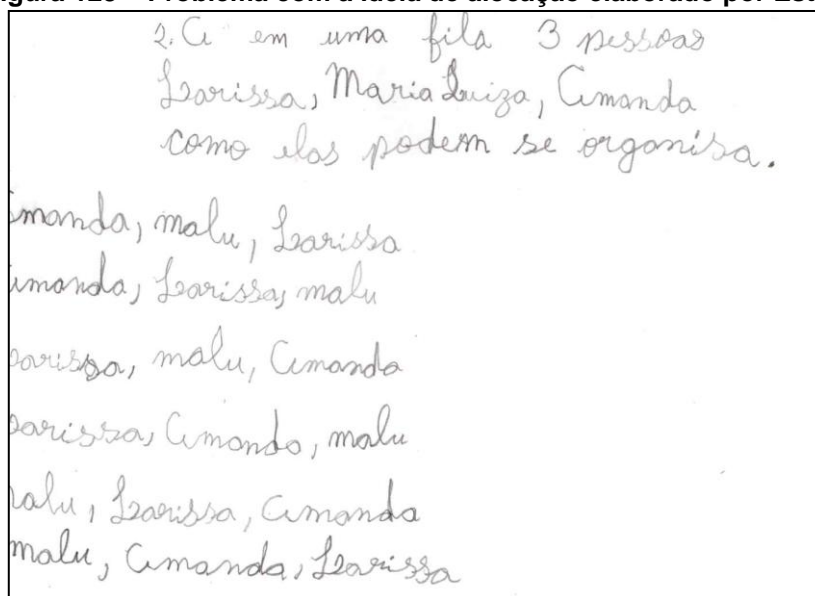 Problema com a ideia de alocação elaborado por
2. A em uma fila 3 pessoas
Larissa, Maria Luiza, Amanda
como elas podem se organisa.
manda, malu, Larissa
manda, Larissa, malu
arissa, malu, Amanda
arissa, Amanda, malu
alu, Larissa, Amanda
malu, Amanda, Larissa